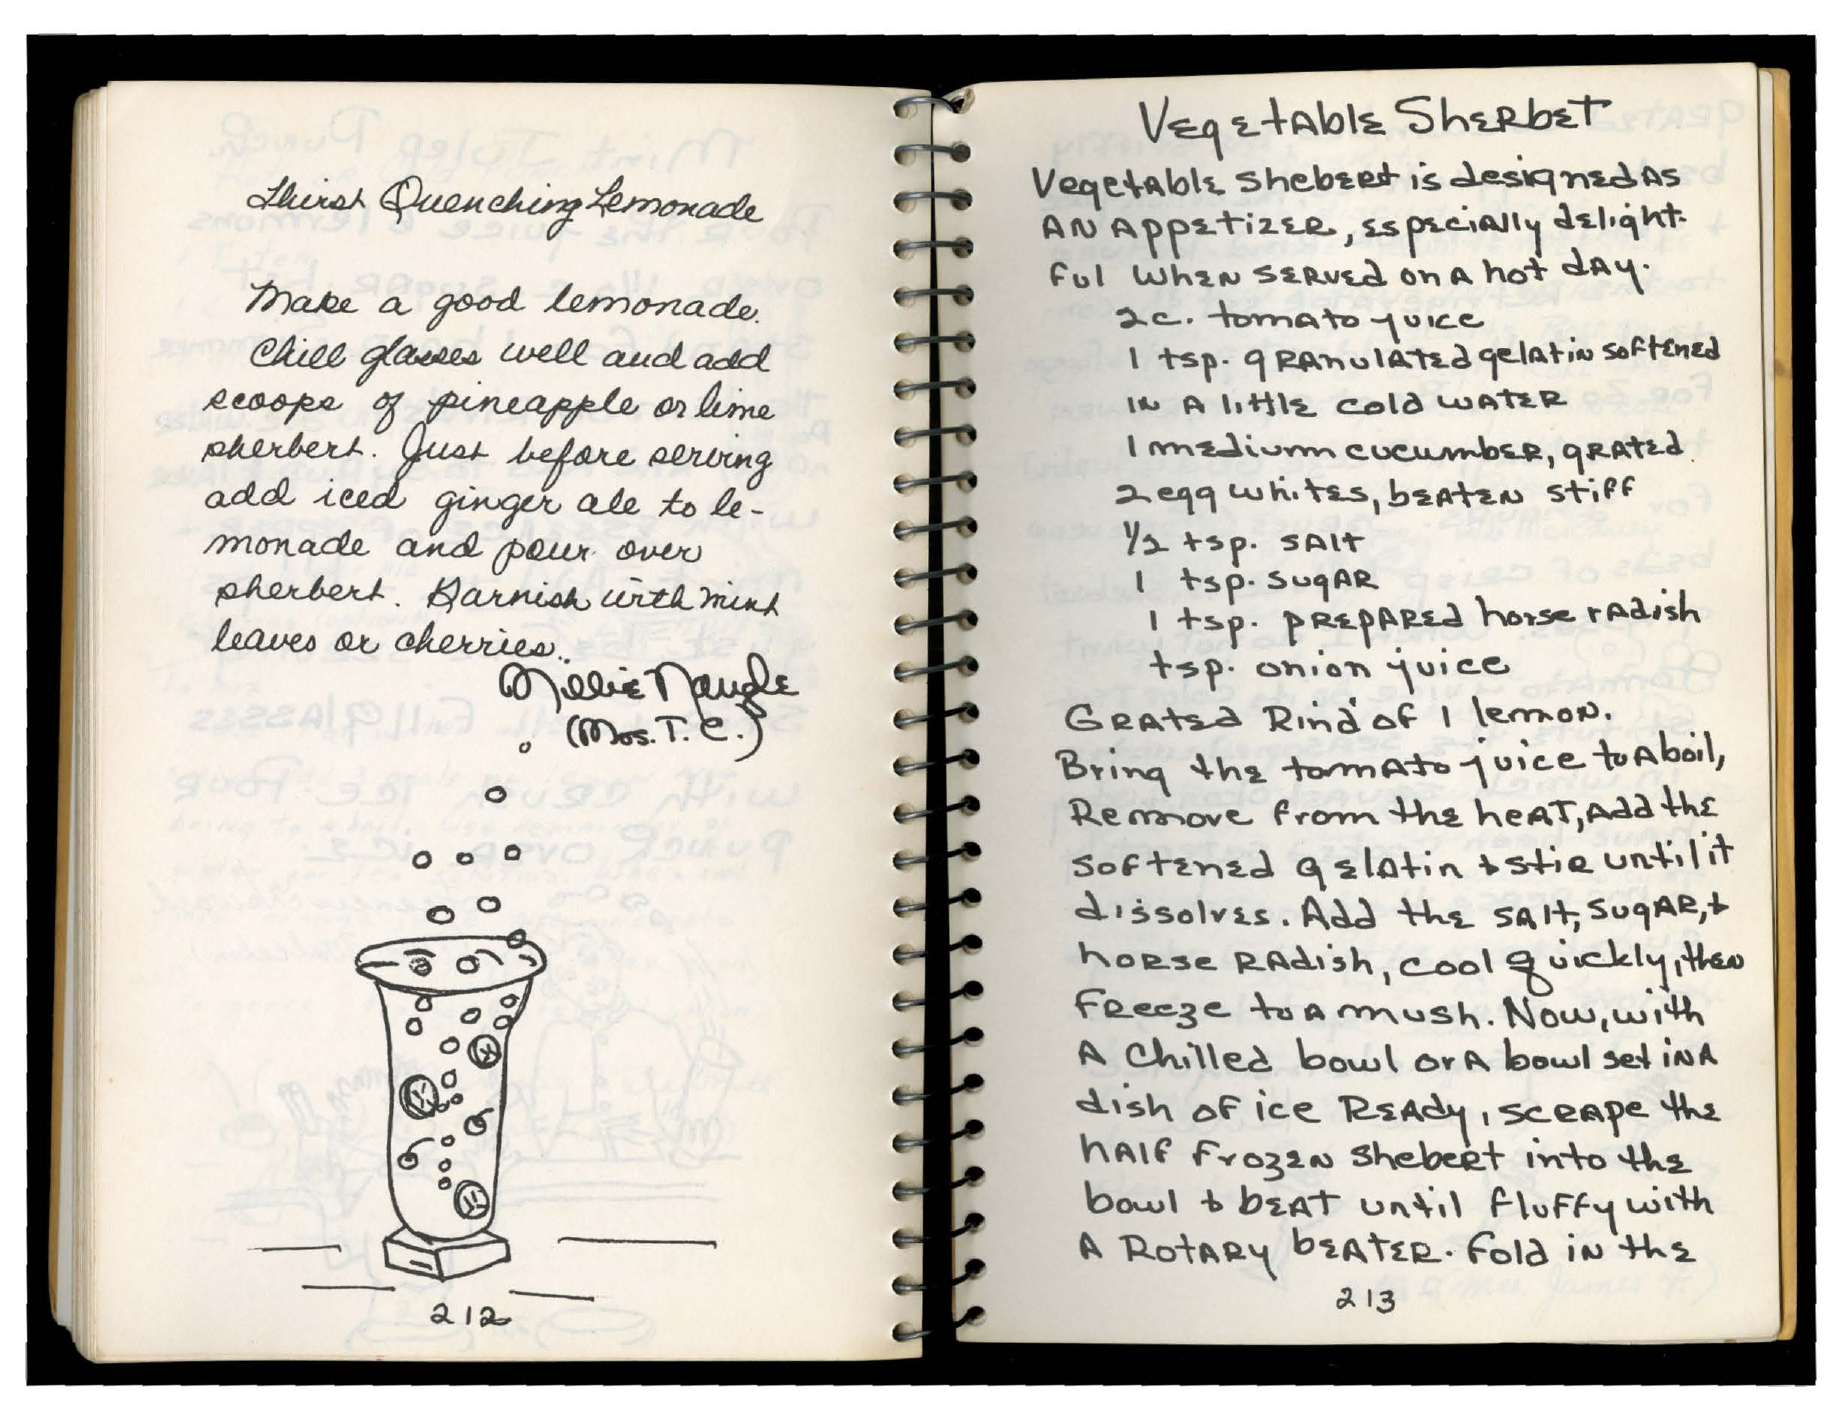 Thirst Quenching Lemonade
Make a good lemonade.
Chill glasses well and add
scoops of pineapple or lime
sherbert. Just before serving
add iced ginger ale to le-
monade and pour over
sherbert. Garnish with mint
leaves or cherries.
Millie Naugle
(Mrs. T. C.)
212
Vegetable Sherbet
Vegetable Shebert is designed as
an appetizer, especially delight-
ful when served on a hot day.
2 c. tomato juice
1 tsp. granulated gelatin softened
in a little cold water
1 medium cucumber, grated
2 egg whites, beaten stiff
1/2 tsp. salt
1 tsp. sugar
1 tsp. prepared horse radish
tsp. onion juice
Grated Rind of 1 lemon.
Bring the tomato juice to a boil,
Remove from the heat, add the
softened gelatin & stir until it
dissolves. Add the salt, sugar, &
horse radish, cool quickly, then
freeze to a mush. Now, with
a chilled bowl or a bowl set in a
dish of ice ready, scrape the
half frozen shebert into the
bowl & beat until fluffy with
a rotary beater. Fold in the
213